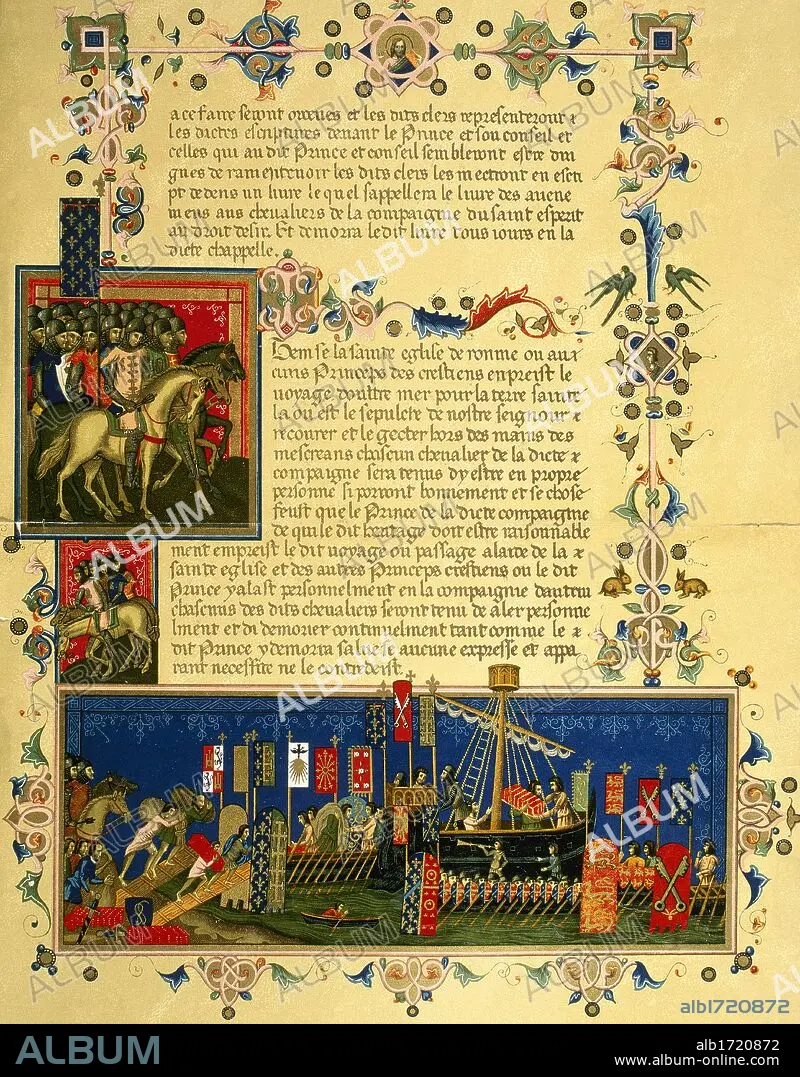 a ce faire seront oyeues et les dits clers representeront &
les dictes escriptures devant le Prince et son conseil et
celles qui au dit Prince et conseil sembleront estre din
gnes de ramentevoir les dits clers les mectront en escri
pt dedens un livre le quel sappellera le livre des avene
mens aus chevaliers de la compaigne du saint esperit
au droit desir. Et demorra le dit livre tous iours en la
dicte chappelle.
Item se la sainte eglise de romme ou au
cuns Princeps des crestiens enpreist le
voyage doultre mer pour la terre sainte
la ou est le sepulcre de nostre seigneur &
recourer et le gecter hors des mains des
mescreans chascun chevalier de la dicte &
compaigne sera tenus dy estre en propre
personne si porront bonnement et se chose
feust que le Prince de la dicte compaigne
de qui le dit heritage doit estre raisonnable
ment empreist le dit voyage ou passage a laide de la &
sainte eglise et des autres Princeps crestiens ou le dit
Prince y alast personnelment en la compaignie dautrui
chascuns des dits chevaliers seront tenu de aler personne
lment et di demorer continuelment tant comme le &
dit Prince y demorra salve se aucune expresse et appa
rant necessite ne le contredeist.
alb1720872
ALBUM
alb1720872
www.album-online.com